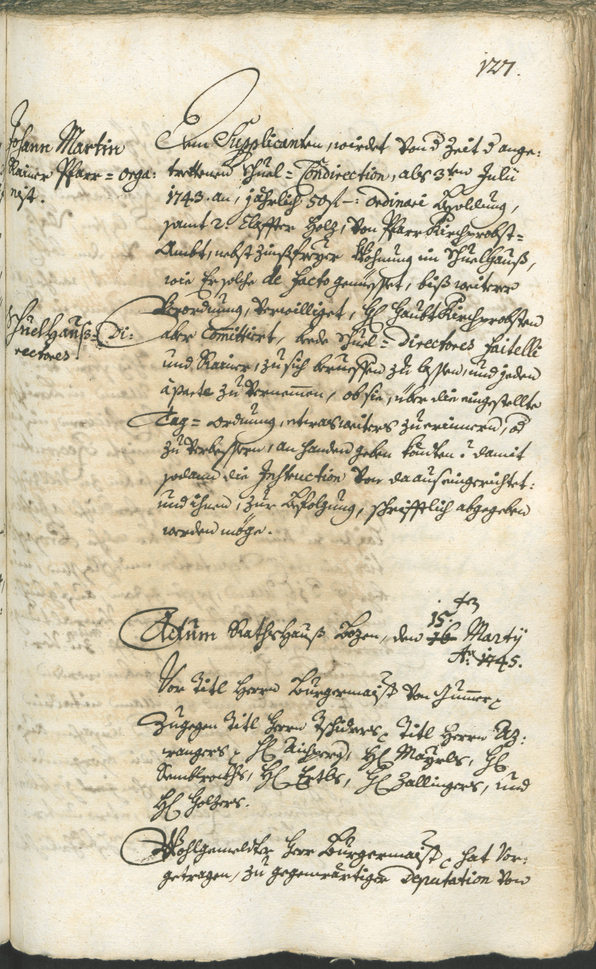 127.
Johann Martin
Rainer Pfarr= orga:
nist.
Dem Supplicanten, wirdet von d Zeit d ange:
trettenen schuel= Condirection, als 3ten Julii
1743. an, jährlich 50 f –: ordinari Besoldung,
samt 2. Claffter Holz, von Pfarr Kirchprobst=
Ambt, nebst zinßfreyer Wohnung im Schuelhauß,
wie Er solche de facto geniesset, biß weitere
Verordnung, verwilliget, H Haubt Kirchprobsten
Schuelhauß= Di:
rectores.
aber Comittiert, beede Schuel= Directores Faitelli
und Rainer, zu sich berueffen zu lassen, und jeden
àparte zu vernemmen, ob sie, über die eingestellte
Tag= ordnung, etwas weiters zu erinnern, od
zu verbessern, an handen geben könten? damit
sodann die Instruction von da aus eingerichtet:
und ihnen, zur Befolgung, schrifftlich abgegeben
werden möge.
Actum Rathshauß Bozen, den 15 ten Marty
Ao. 1745.
Vor Titl Herrn Burgermaist von
Zugegen Titl Herrn Tschiderer, Titl Herrn Az:
wangers, H Aichperg, H Mayrls, H
H Ertls, H Zallingers, und
H Holzers.
Wohlgemelter Herr Burgermaist hat vor:
getragen, zu gegenwärtiger Deputation von